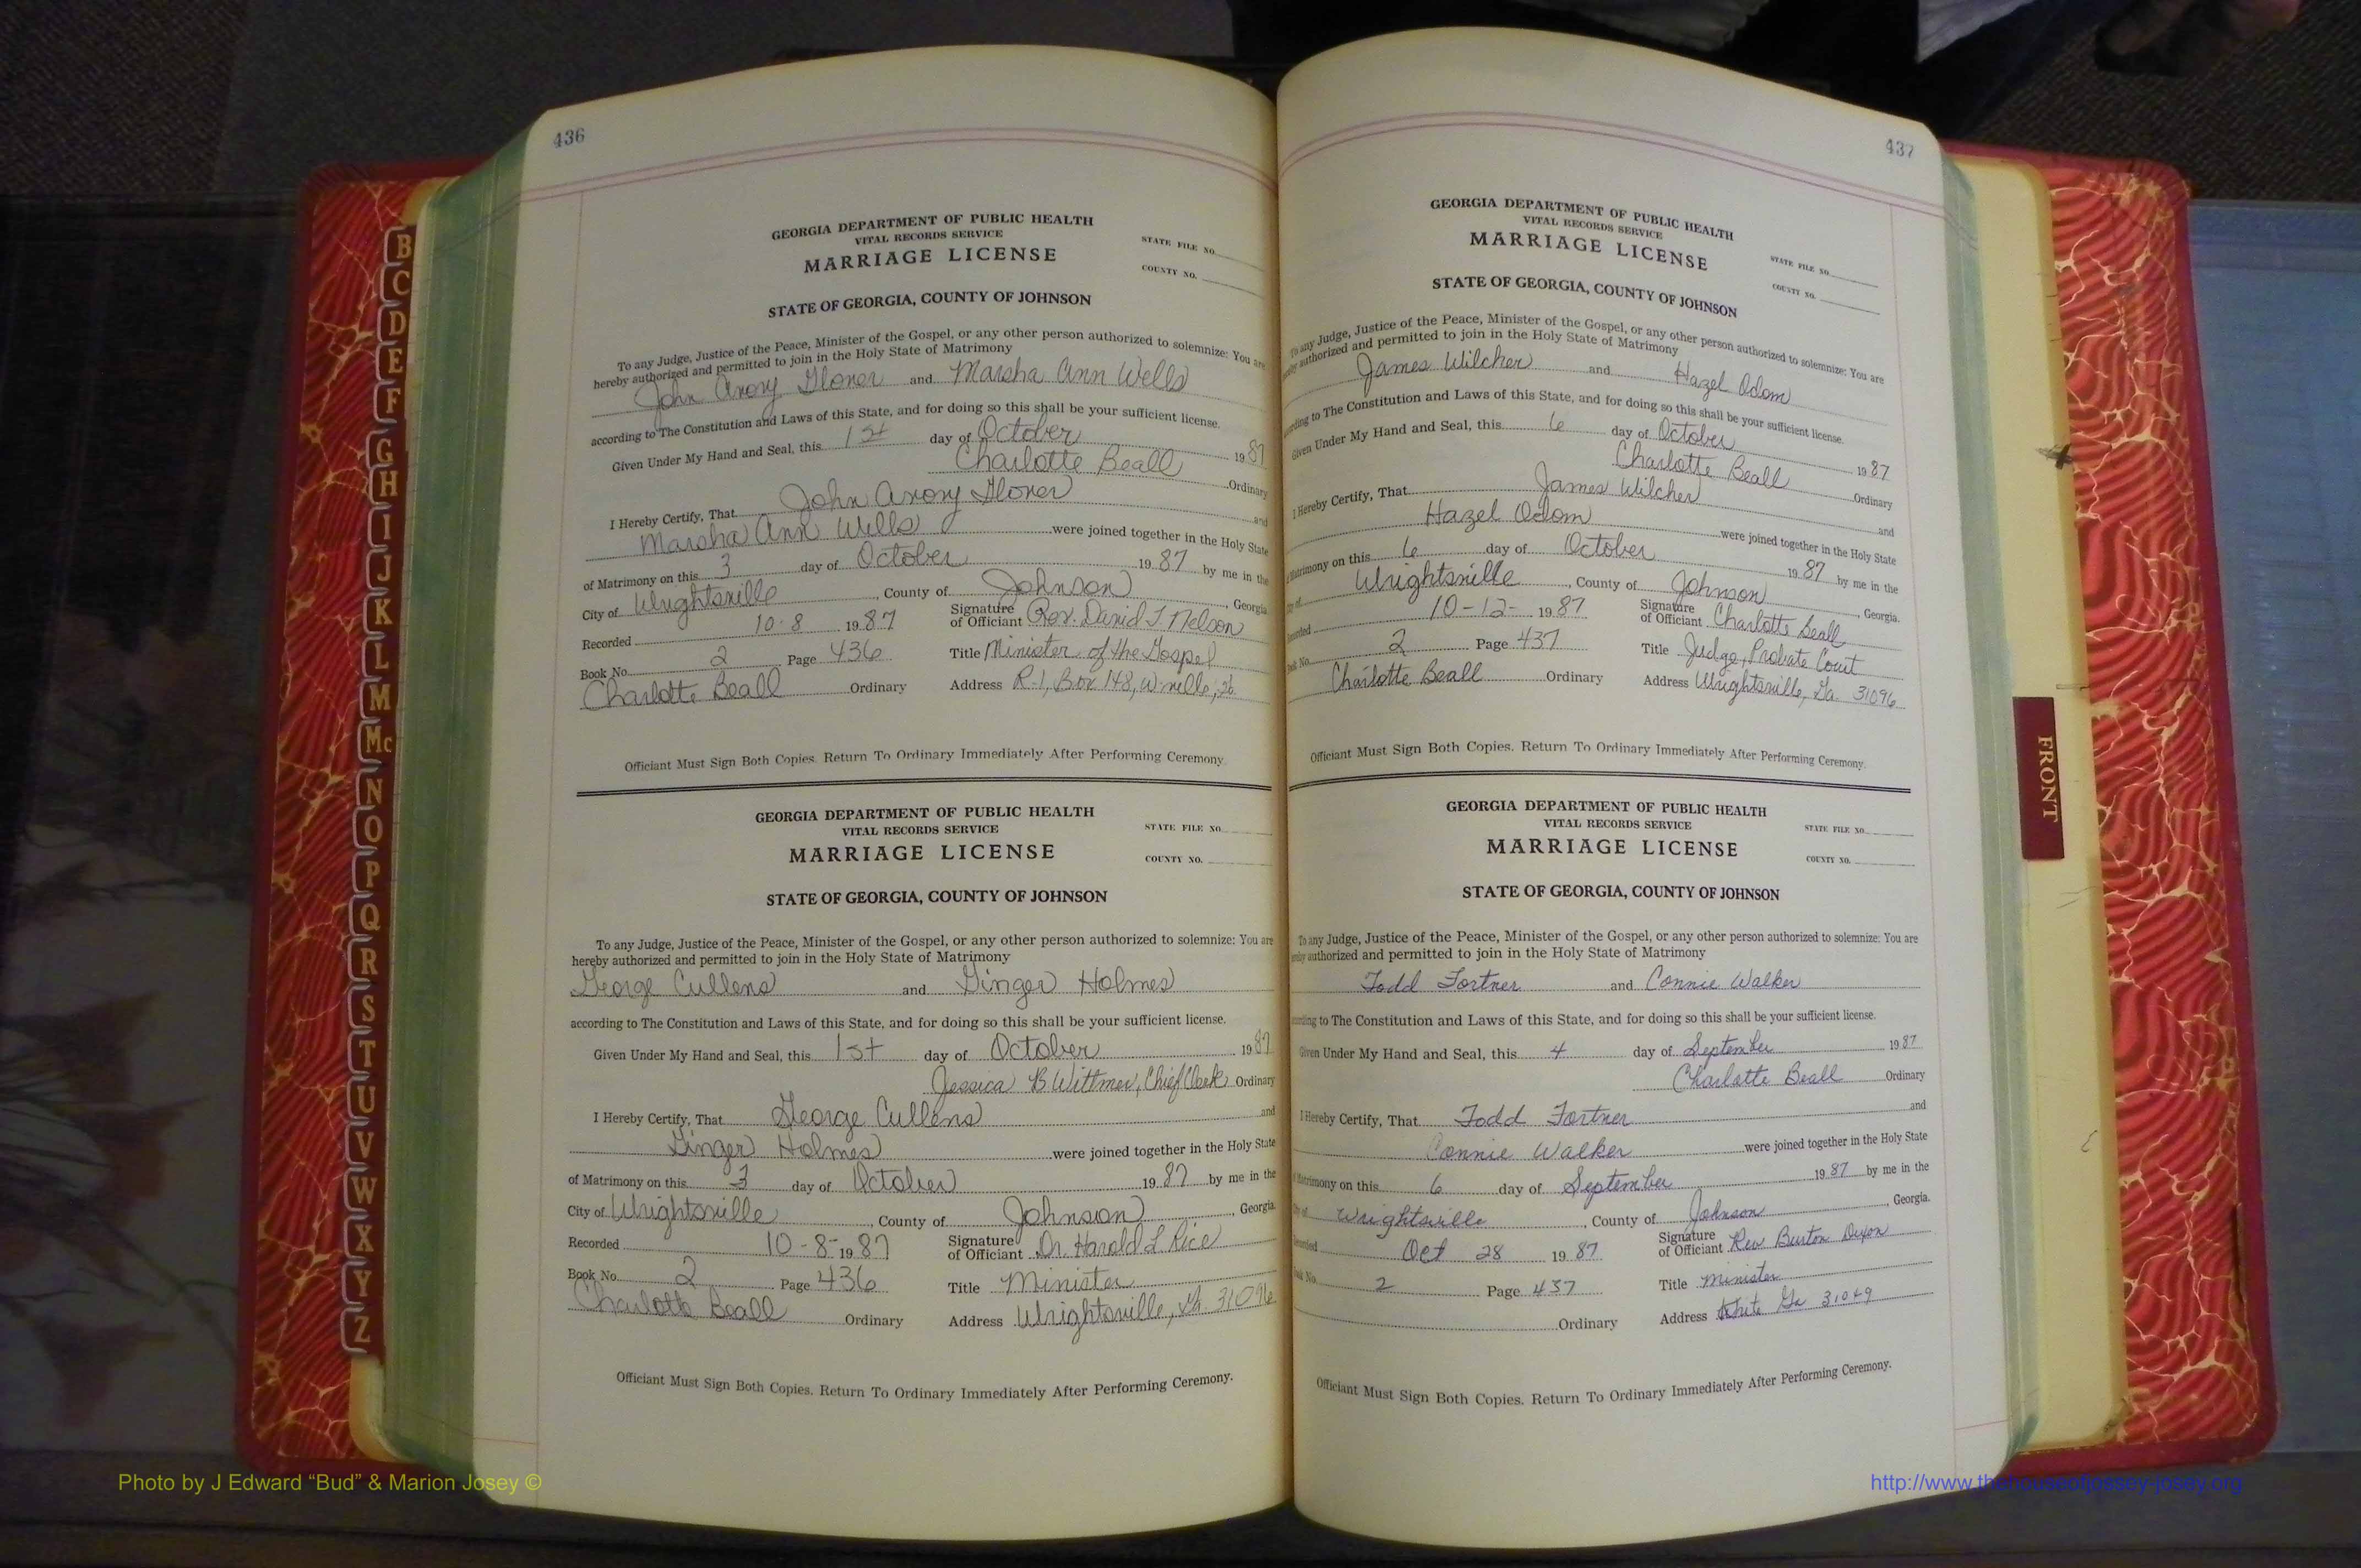 436
GEORGIA DEPARTMENT OF PUBLIC HEALTH
VITAL RECORDS SERVICE
MARRIAGE LICENSE
STATE FILE NO.
COUNTY NO.
STATE OF GEORGIA, COUNTY OF JOHNSON
To any Judge, Justice of the Peace, Minister of the Gospel, or any other person authorized to solemnize: You are
hereby authorized and permitted to join in the Holy State of Matrimony
John Avory Glover and Marsha Ann Wells
according to The Constitution and Laws of this State, and for doing so this shall be your sufficient license.
Given Under My Hand and Seal, this 1st day of October 1987
Charlotte Beall Ordinary
I Hereby Certify, That John Avory Glover and
Marsha Ann Wells were joined together in the Holy State
of Matrimony on this 3 day of October 1987 by me in the
City of Wrightsville, County of Johnson, Georgia
Recorded 10-8 1987 Signature of Officiant Rev. David J. Nelson
Book No. 2 Page 436 Title Minister of the Gospel
Charlotte Beall Ordinary Address R-1, Box 148, Wville, Ga.
Officiant Must Sign Both Copies. Return To Ordinary Immediately After Performing Ceremony.
GEORGIA DEPARTMENT OF PUBLIC HEALTH
VITAL RECORDS SERVICE
MARRIAGE LICENSE
STATE FILE NO.
COUNTY NO.
STATE OF GEORGIA, COUNTY OF JOHNSON
To any Judge, Justice of the Peace, Minister of the Gospel, or any other person authorized to solemnize: You are
hereby authorized and permitted to join in the Holy State of Matrimony
George Cullens and Ginger Holmes
according to The Constitution and Laws of this State, and for doing so this shall be your sufficient license.
Given Under My Hand and Seal, this 1st day of October 1987
Jessica B. Wittmer, Chief Clerk Ordinary
I Hereby Certify, That George Cullens and
Ginger Holmes were joined together in the Holy State
of Matrimony on this 3 day of October 1987 by me in the
City of Wrightsville, County of Johnson, Georgia
Recorded 10-8- 1987 Signature of Officiant Dr. Harold L Rice
Book No. 2 Page 436 Title Minister
Charlotte Beall Ordinary Address Wrightsville, Ga. 31096
Officiant Must Sign Both Copies. Return To Ordinary Immediately After Performing Ceremony.
437
GEORGIA DEPARTMENT OF PUBLIC HEALTH
VITAL RECORDS SERVICE
MARRIAGE LICENSE
STATE FILE NO.
COUNTY NO.
STATE OF GEORGIA, COUNTY OF JOHNSON
To any Judge, Justice of the Peace, Minister of the Gospel, or any other person authorized to solemnize: You are
hereby authorized and permitted to join in the Holy State of Matrimony
James Wilcher and Hazel Odom
according to The Constitution and Laws of this State, and for doing so this shall be your sufficient license.
Given Under My Hand and Seal, this 6 day of October 1987
Charlotte Beall Ordinary
I Hereby Certify, That James Wilcher and
Hazel Odom were joined together in the Holy State
of Matrimony on this 6 day of October 1987 by me in the
City of Wrightsville, County of Johnson, Georgia.
Recorded 10-12- 1987 Signature of Officiant Charlotte Beall
Book No. 2 Page 437 Title Judge, Probate Court
Charlotte Beall Ordinary Address Wrightsville, Ga. 31096
Officiant Must Sign Both Copies. Return To Ordinary Immediately After Performing Ceremony.
GEORGIA DEPARTMENT OF PUBLIC HEALTH
VITAL RECORDS SERVICE
MARRIAGE LICENSE
STATE FILE NO.
COUNTY NO.
STATE OF GEORGIA, COUNTY OF JOHNSON
To any Judge, Justice of the Peace, Minister of the Gospel, or any other person authorized to solemnize: You are
hereby authorized and permitted to join in the Holy State of Matrimony
Todd Fortner and Connie Walker
according to The Constitution and Laws of this State, and for doing so this shall be your sufficient license.
Given Under My Hand and Seal, this 4 day of September 1987
Charlotte Beall Ordinary
I Hereby Certify, That Todd Fortner and
Connie Walker were joined together in the Holy State
of Matrimony on this 6 day of September 1987 by me in the
City of Wrightsville, County of Johnson, Georgia.
Recorded Oct 28 1987 Signature of Officiant Rev Burton Dixon
Book No. 2 Page 437 Title Minister
Ordinary Address Ga 31049
Officiant Must Sign Both Copies. Return To Ordinary Immediately After Performing Ceremony.
B
C
D
E
F
G
H
I
J
K
L
M
Mc
N
O
P
Q
R
S
T
U
V
W
X
Y
Z
FRONT
Photo by J Edward “Bud” & Marion Josey ©
http://www.thehouseofjossey-josey.org